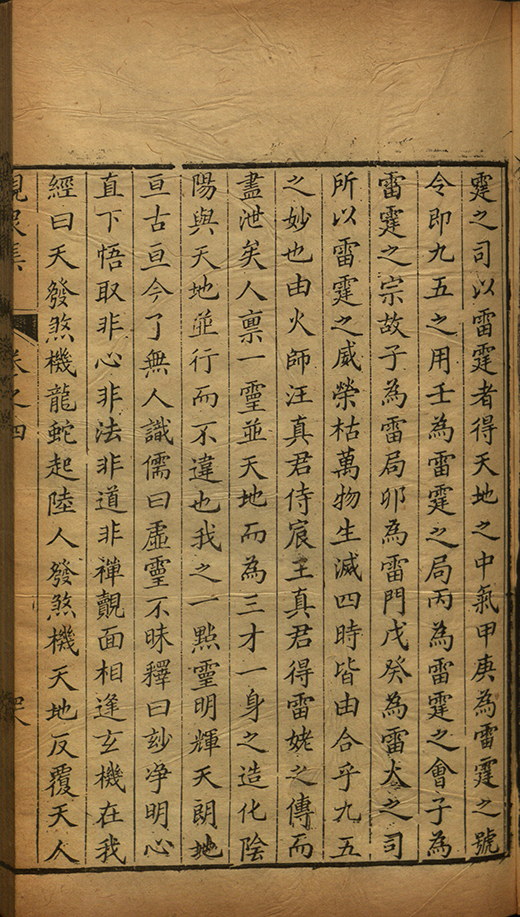 霆之司以雷霆者得天地之中氣甲庚為雷霆之號
令即九五之用壬為雷霆之局丙為雷霆之會子為
雷霆之宗故子為雷局卯為雷門戊癸為雷火之司
所以雷霆之威榮枯萬物生滅四時皆由合乎九五
之妙也由火師汪真君侍宸王真君得雷姥之傳而
盡泄矣人禀一靈並天地而為三才一身之造化陰
陽與天地並行而不違也我之一點靈明輝天朗地
亘古亘今了無人識儒曰虛靈不昧釋曰玅淨明心
直下悟取非心非法非道非禪覿面相逢玄機在我
經曰天發煞機龍蛇起陸人發煞機天地反覆天人
卷之四